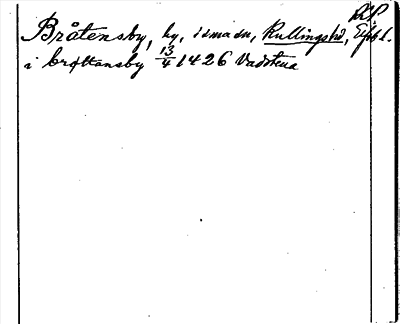 RP.
Bråtensby, by, ismasn, Kullingshd, Elfsbl.
i brottansby 13/4 1426 Vadstena